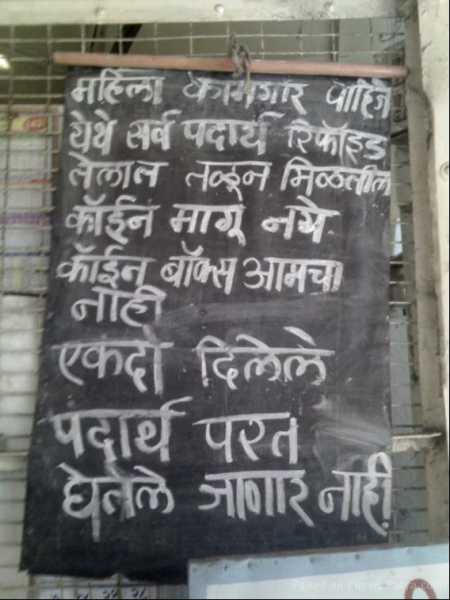 महिला कामगार पाहिजे
येथे सर्व पदार्थ रिफॉइड
तेलात तळून मिळतील
कॉईन मागू नये
कॉईन बॉक्स आमचा
नाही
एकदा दिलेले
पदार्थ परत
घेतले जाणार नाही